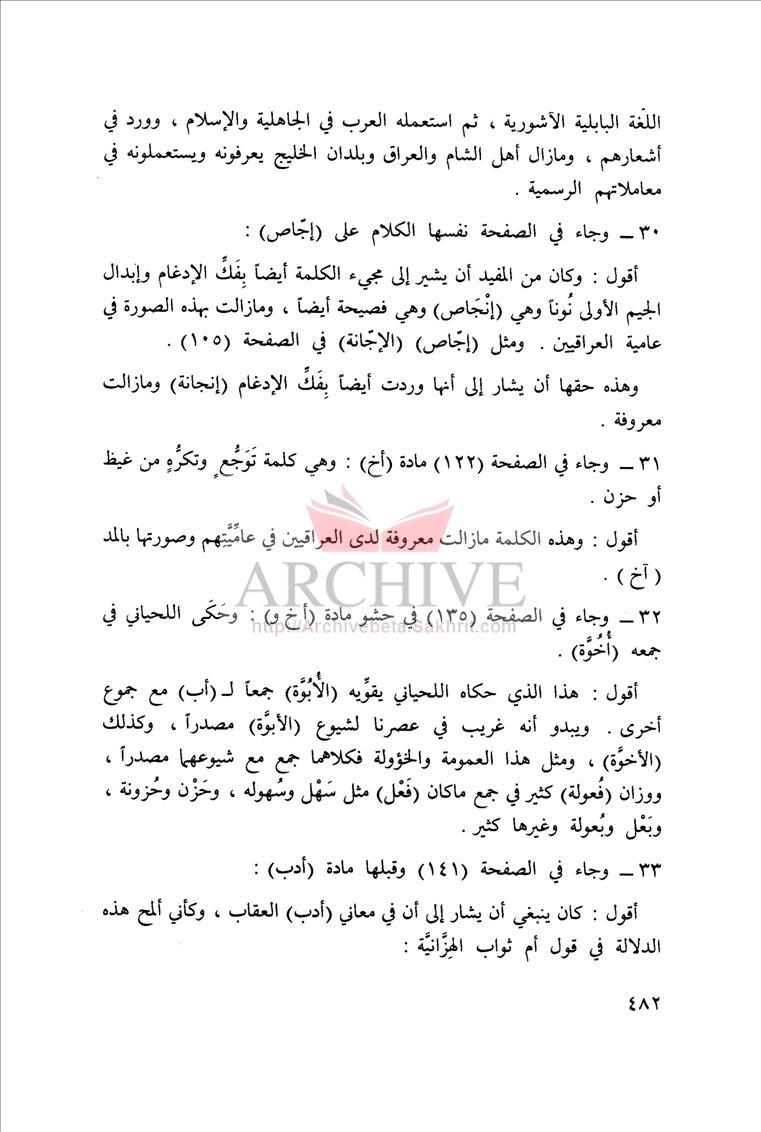 اللّغة البابلية الآشورية ، ثم استعمله العرب في الجاهلية والإسلام ، وورد في
أشعارهم ، ومازال أهل الشام والعراق وبلدان الخليج يعرفونه ويستعملونه في
معاملاتهم الرسمية .
٣٠ ــ وجاء في الصفحة نفسها الكلام على (إجّاص) :
أقول : وكان من المفيد أن يشير إلى مجيء الكلمة أيضاً بِفَكِّ الإدغام وإبدال
الجيم الأولى نُوناً وهي (إنْجَاص) وهي فصيحة أيضاً ، ومازالت بهذه الصورة في
عامية العراقيين . ومثل (إجّاص) (الإجّانة) في الصفحة (١٠٥) .
وهذه حقها أن يشار إلى أنها وردت أيضاً بِفَكِّ الإدغام (إنجانة) ومازالت
معروفة .
٣١ ــ وجاء في الصفحة (١٢٢) مادة (أخ) : وهي كلمة تَوَجُّعٍ وتكرُّهٍ من غيظ
أو حزن .
أقول : وهذه الكلمة مازالت معروفة لدى العراقيين في عامِّيَّتِهم وصورتها بالمد
( آخ ) .
ARCHIVE
٣٢ ــ وجاء في الصفحة (١٣٥) في حشو مادة (أ خ و) : وحَكَى اللحياني في
http://Archivebeta.Sakhrit.com
جمعه (أُخُوَّة) .
أقول : هذا الذي حكاه اللحياني يقوِّيه (الأُبُوَّة) جمعاً لـ (أب) مع جموع
أخرى . ويبدو أنه غريب في عصرنا لشيوع (الأبوَّة) مصدراً ، وكذلك
(الأخوَّة) ، ومثل هذا العمومة والخؤولة فكلاهما جمع مع شيوعهما مصدراً ،
ووزان (فُعولة) كثير في جمع ماكان (فَعْل) مثل سَهْل وسُهوله ، وحَزْن وحُزونة ،
وبَعْل وبُعولة وغيرها كثير .
٣٣ ــ وجاء في الصفحة (١٤١) وقبلها مادة (أدب) :
أقول : كان ينبغي أن يشار إلى أن في معاني (أدب) العقاب ، وكأني ألمح هذه
الدلالة في قول أم ثواب الهِزَّانيَّة :
٤٨٢